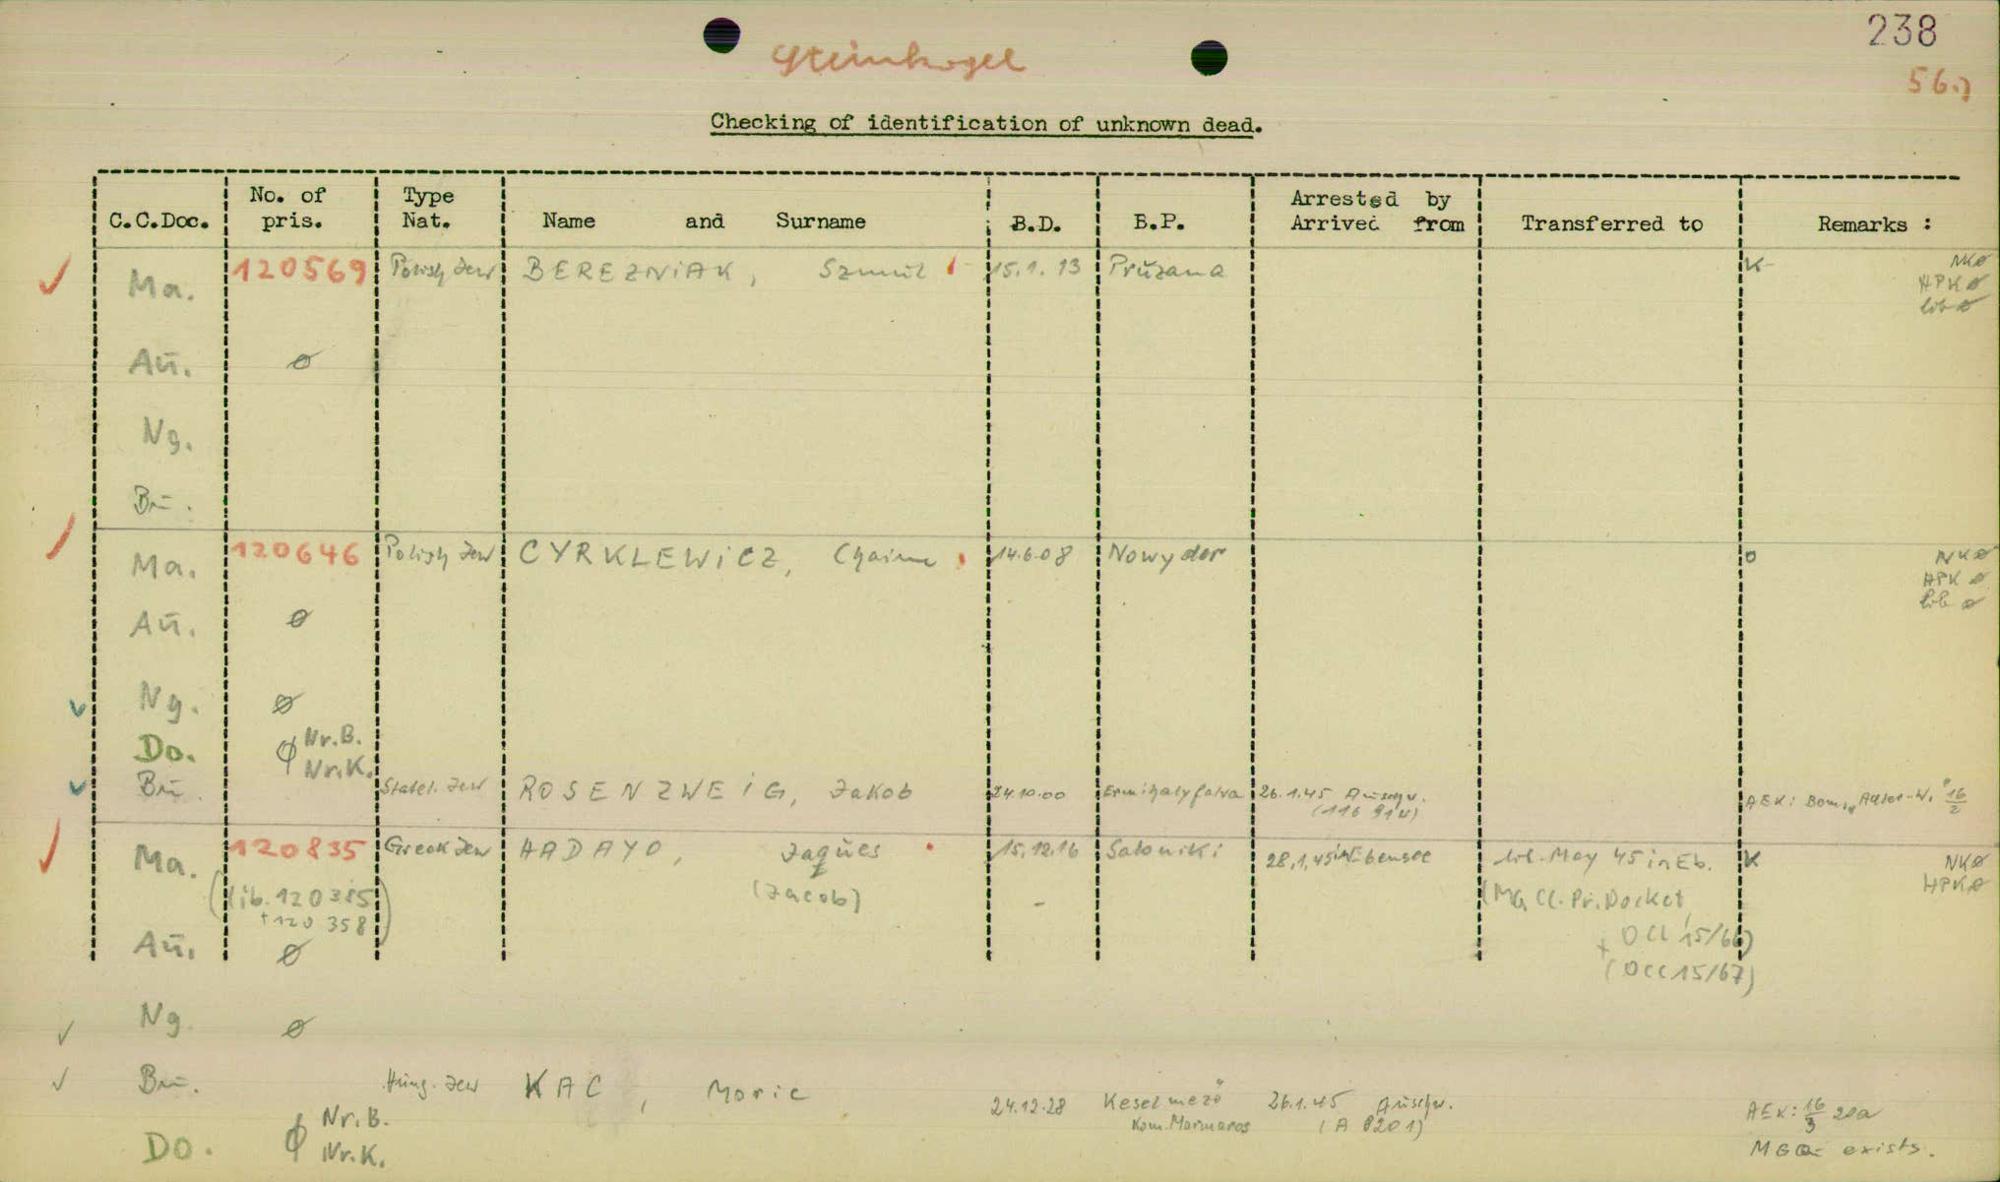 238
Steinkogel
56.)
Checking of identification of unknown dead.
C.C.Doc. No. of pris. Type Nat. Name and Surname B.D. B.P. Arrested by Arrived from Transferred to Remarks :
Ma. 120569 Polish Jew BEREZNiAK, Szmul 15.1.13 Pružana K NKø
HPKø
lib ø
Aū. ø
Ng.
Bū.
Ma. 120646 Polish Jew CYRKLEWiCZ, Chaim 14.6.08 Nowy dor o NKø
HPK ø
lib ø
Aū. ø
Ng. ø
Do. ø Nr.B.
Nr.K.
Bū. Statel. Jew ROSENZWEiG, Jakob 24.10.00 Ermihalyfalva 26.1.45 Auschw. AEK: 16/2
Ma. 120835 Greek Jew HADAYO, Jaqūes 15.12.16 Saloniki 28.1.45 in Ebensee lib. May 45 in Eb. K NKø
(lib. 120385 (Jacob) - (MG Cl. Pr. Docket, HPKø
+ 120 358)
Aū. ø + OCC 15/66)
(OCC 15/67)
Ng. ø
Bū. Hung. Jew KAC, Moric 24.12.28 Keselmező 26.1.45 Auschw. AEK: 16/3 20a
Kom. Marmaros (A 8201)
Do. ø Nr.B.
Nr.K. exists.